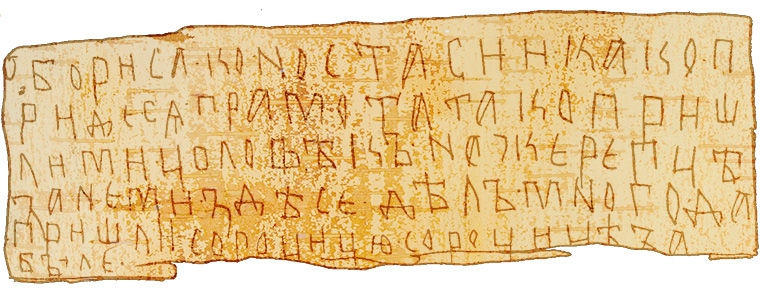 Ѿ БОРИСА КО NОСТАСИИ КАКО П
РИДЕ СА ГРАМОТА ТАКО ПРИШ
ЛИ МИ ЦОЛОВѢКЪ NА ЖЕРЕПЦѢ
ЗАNЕ МИ ЗДѢСЕ ДѢЛЪ МNОГО ДА
ПРИШЛИ СОРОЦИЦЮ СОРОЦИЦѢ ЗА
БЫЛЕ